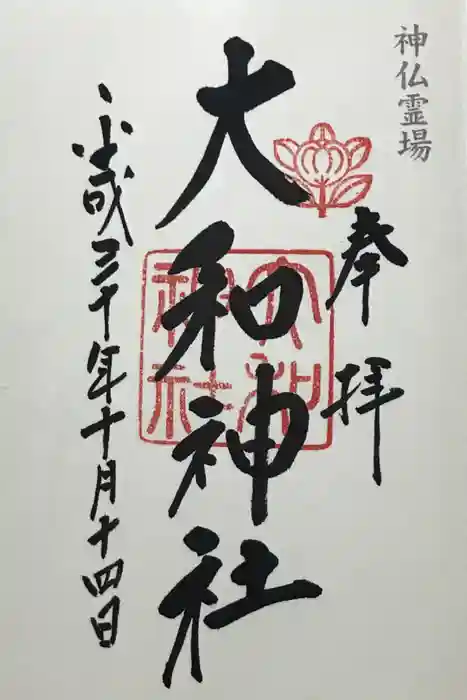 神仏霊場
奉拝
大和神社
平成三十年十月十四日